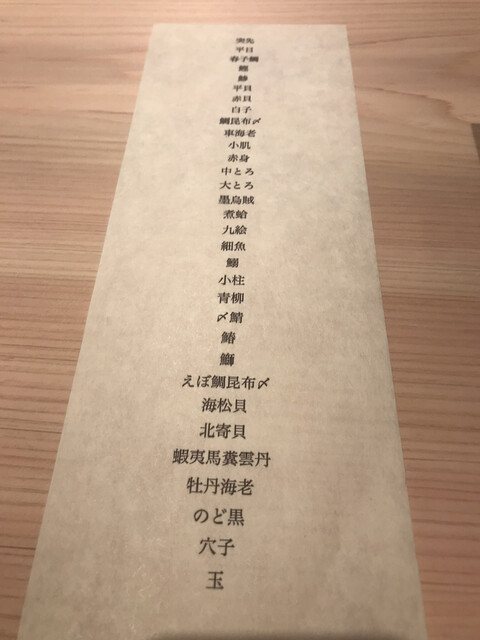 突先
平目
春子鯛
鰹
鯵
平貝
赤貝
白子
鯛昆布〆
車海老
小肌
赤身
中とろ
大とろ
墨烏賊
煮蛤
九絵
細魚
鰯
小柱
青柳
〆鯖
鰆
鰤
えぼ鯛昆布〆
海松貝
北寄貝
蝦夷馬糞雲丹
牡丹海老
のど黒
穴子
玉